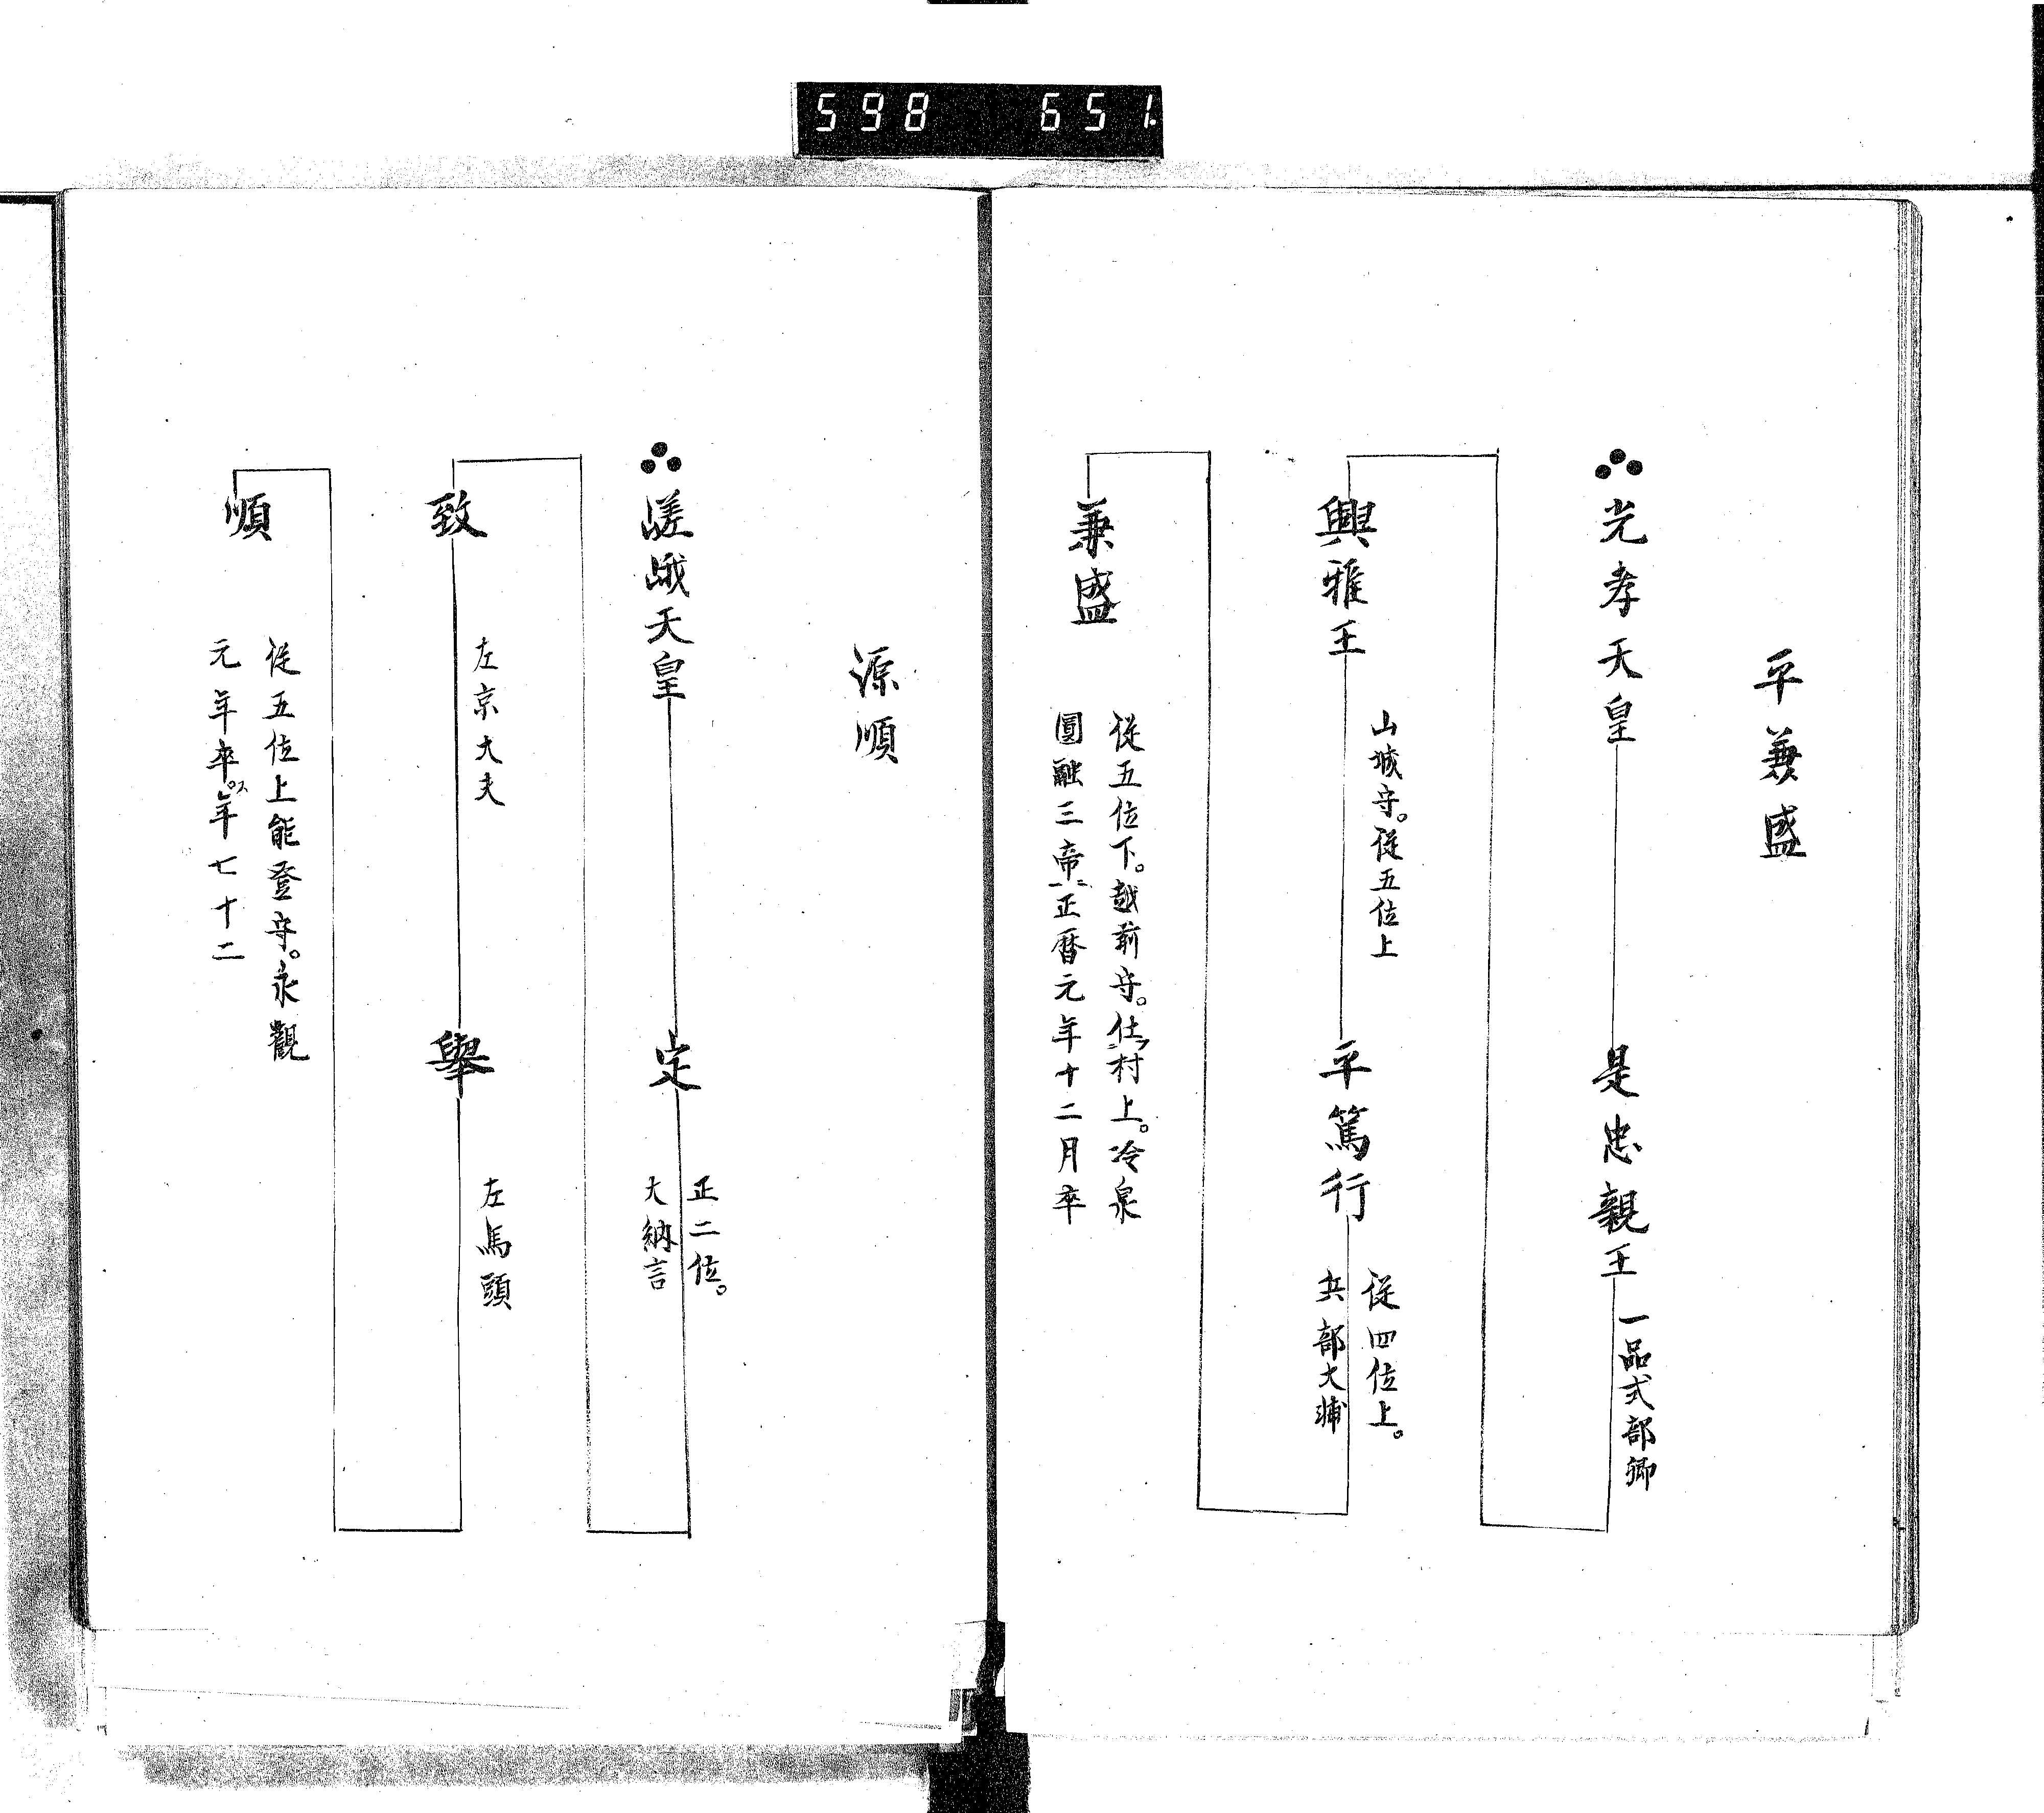 598 651.
平兼盛
光孝天皇
是忠親王
一品式部卿
興雅王
山城守。從五位上
平篤行
從四位上。
兵部大輔
兼盛
從五位下。越前守。仕村上。冷泉
圓融三帝ニ正暦元年十二月卒
源順
嵯峨天皇
定
正二位。
大納言
致
左京大夫
舉
左馬頭
順
從五位上能登守。永觀
元年卒。年七十二